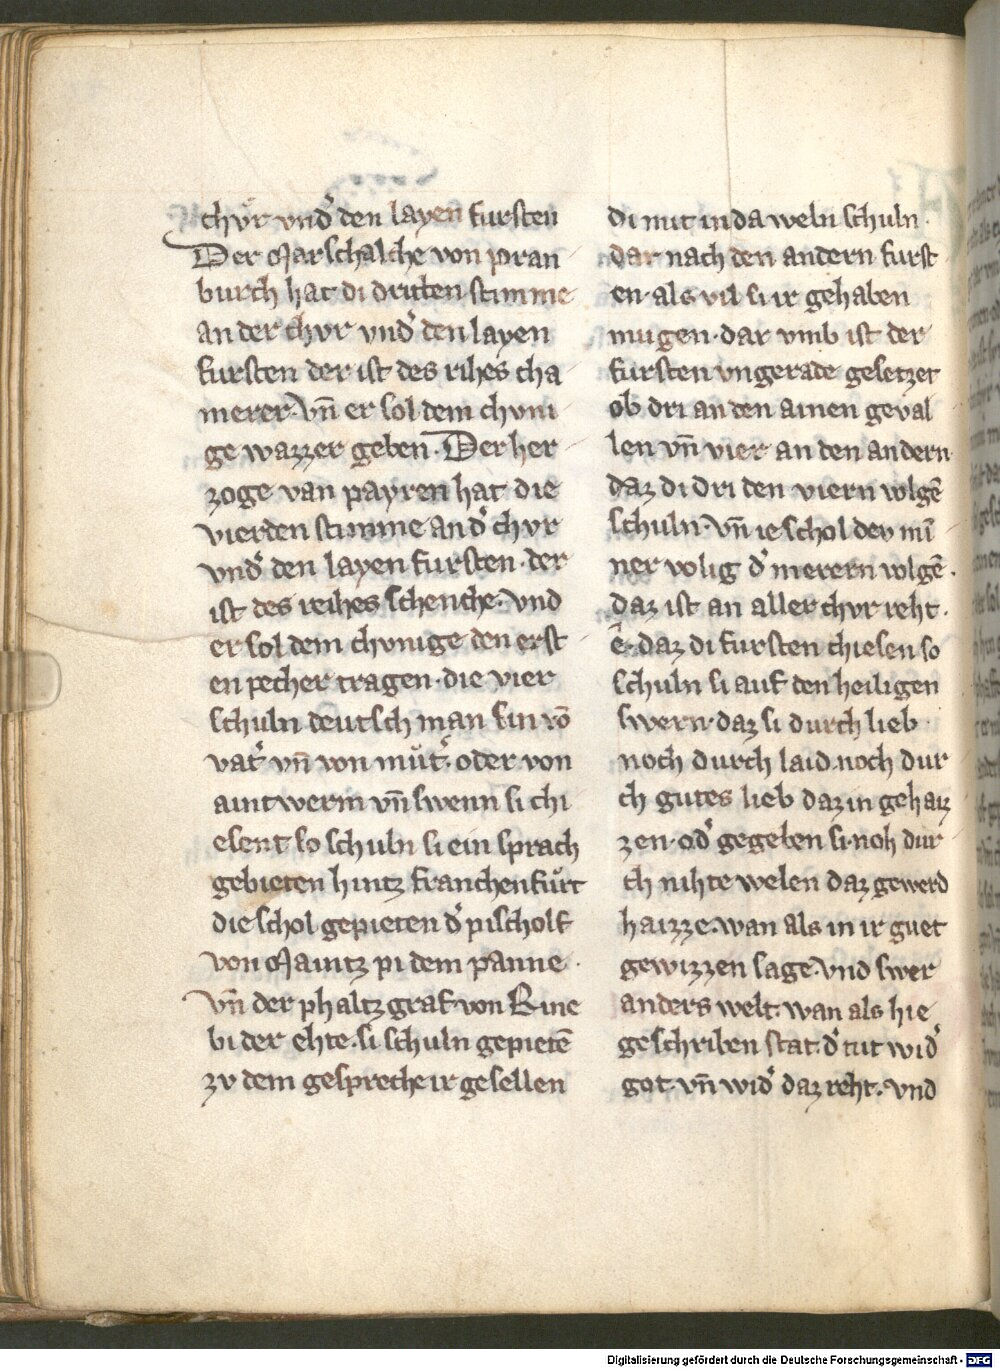 chvͤr vnd̾ den layen fursten
Der Marschalche von pran
burch hat di dritten stimme
an der chvr vnd̾ den layen
fursten der ist des riches cha
merer. vn̄ er sol dem chvni
ge wazzer geben. Der her
zoge van payren hat die
vierden stimme an d̾ chvr
vnd̾ den layen fursten. der
ist des reihes schenche. vnd
er sol dem chvnige den erst
en pecher tragen. die vier
schuln deutsch man sin vō
vat̾ vn̄ von mut̾. oder von
aintwerm vn̄ swenn si chi
esent so schuln si ein sprach
gebieten hintz franchenfurt
die schol gepieten d̾ pischolf
von Maintz pi dem panne.
vn̄ der phaltzgraf von Rine
bi der ehte. si schuln gepietē
zv dem gespreche ir gesellen
di mit in da weln schuln.
dar nach den andern furst
en. als vil si ir gehaben
mugen. dar vmb ist der
fursten vngerade gesetzet
ob dri an den ainen geval
len vn̄ vier an den andern.
daz di dri den viern volgē
schuln. vn̄ ie schol dev mī
ner volig d̾ merern volgē.
daz ist an aller chvr reht.
ē. daz di fursten chiesen so
schuln si auf den heiligen
swern. daz si durch lieb
noch durch laid. noch dur
ch gutes lieb daz in gehaiz
zen. od̾ gegeben si. noh dur
ch nihte welen daz gewerd
haizze. wan als in ir guet
gewizzen sage. vnd swer
anders welt. wan als hie
geschriben stat. d̾ tut wid̾
got. vn̄ wid̾ daz reht. vnd
Digitalisierung gefördert durch die Deutsche Forschungsgemeinschaft - DFG